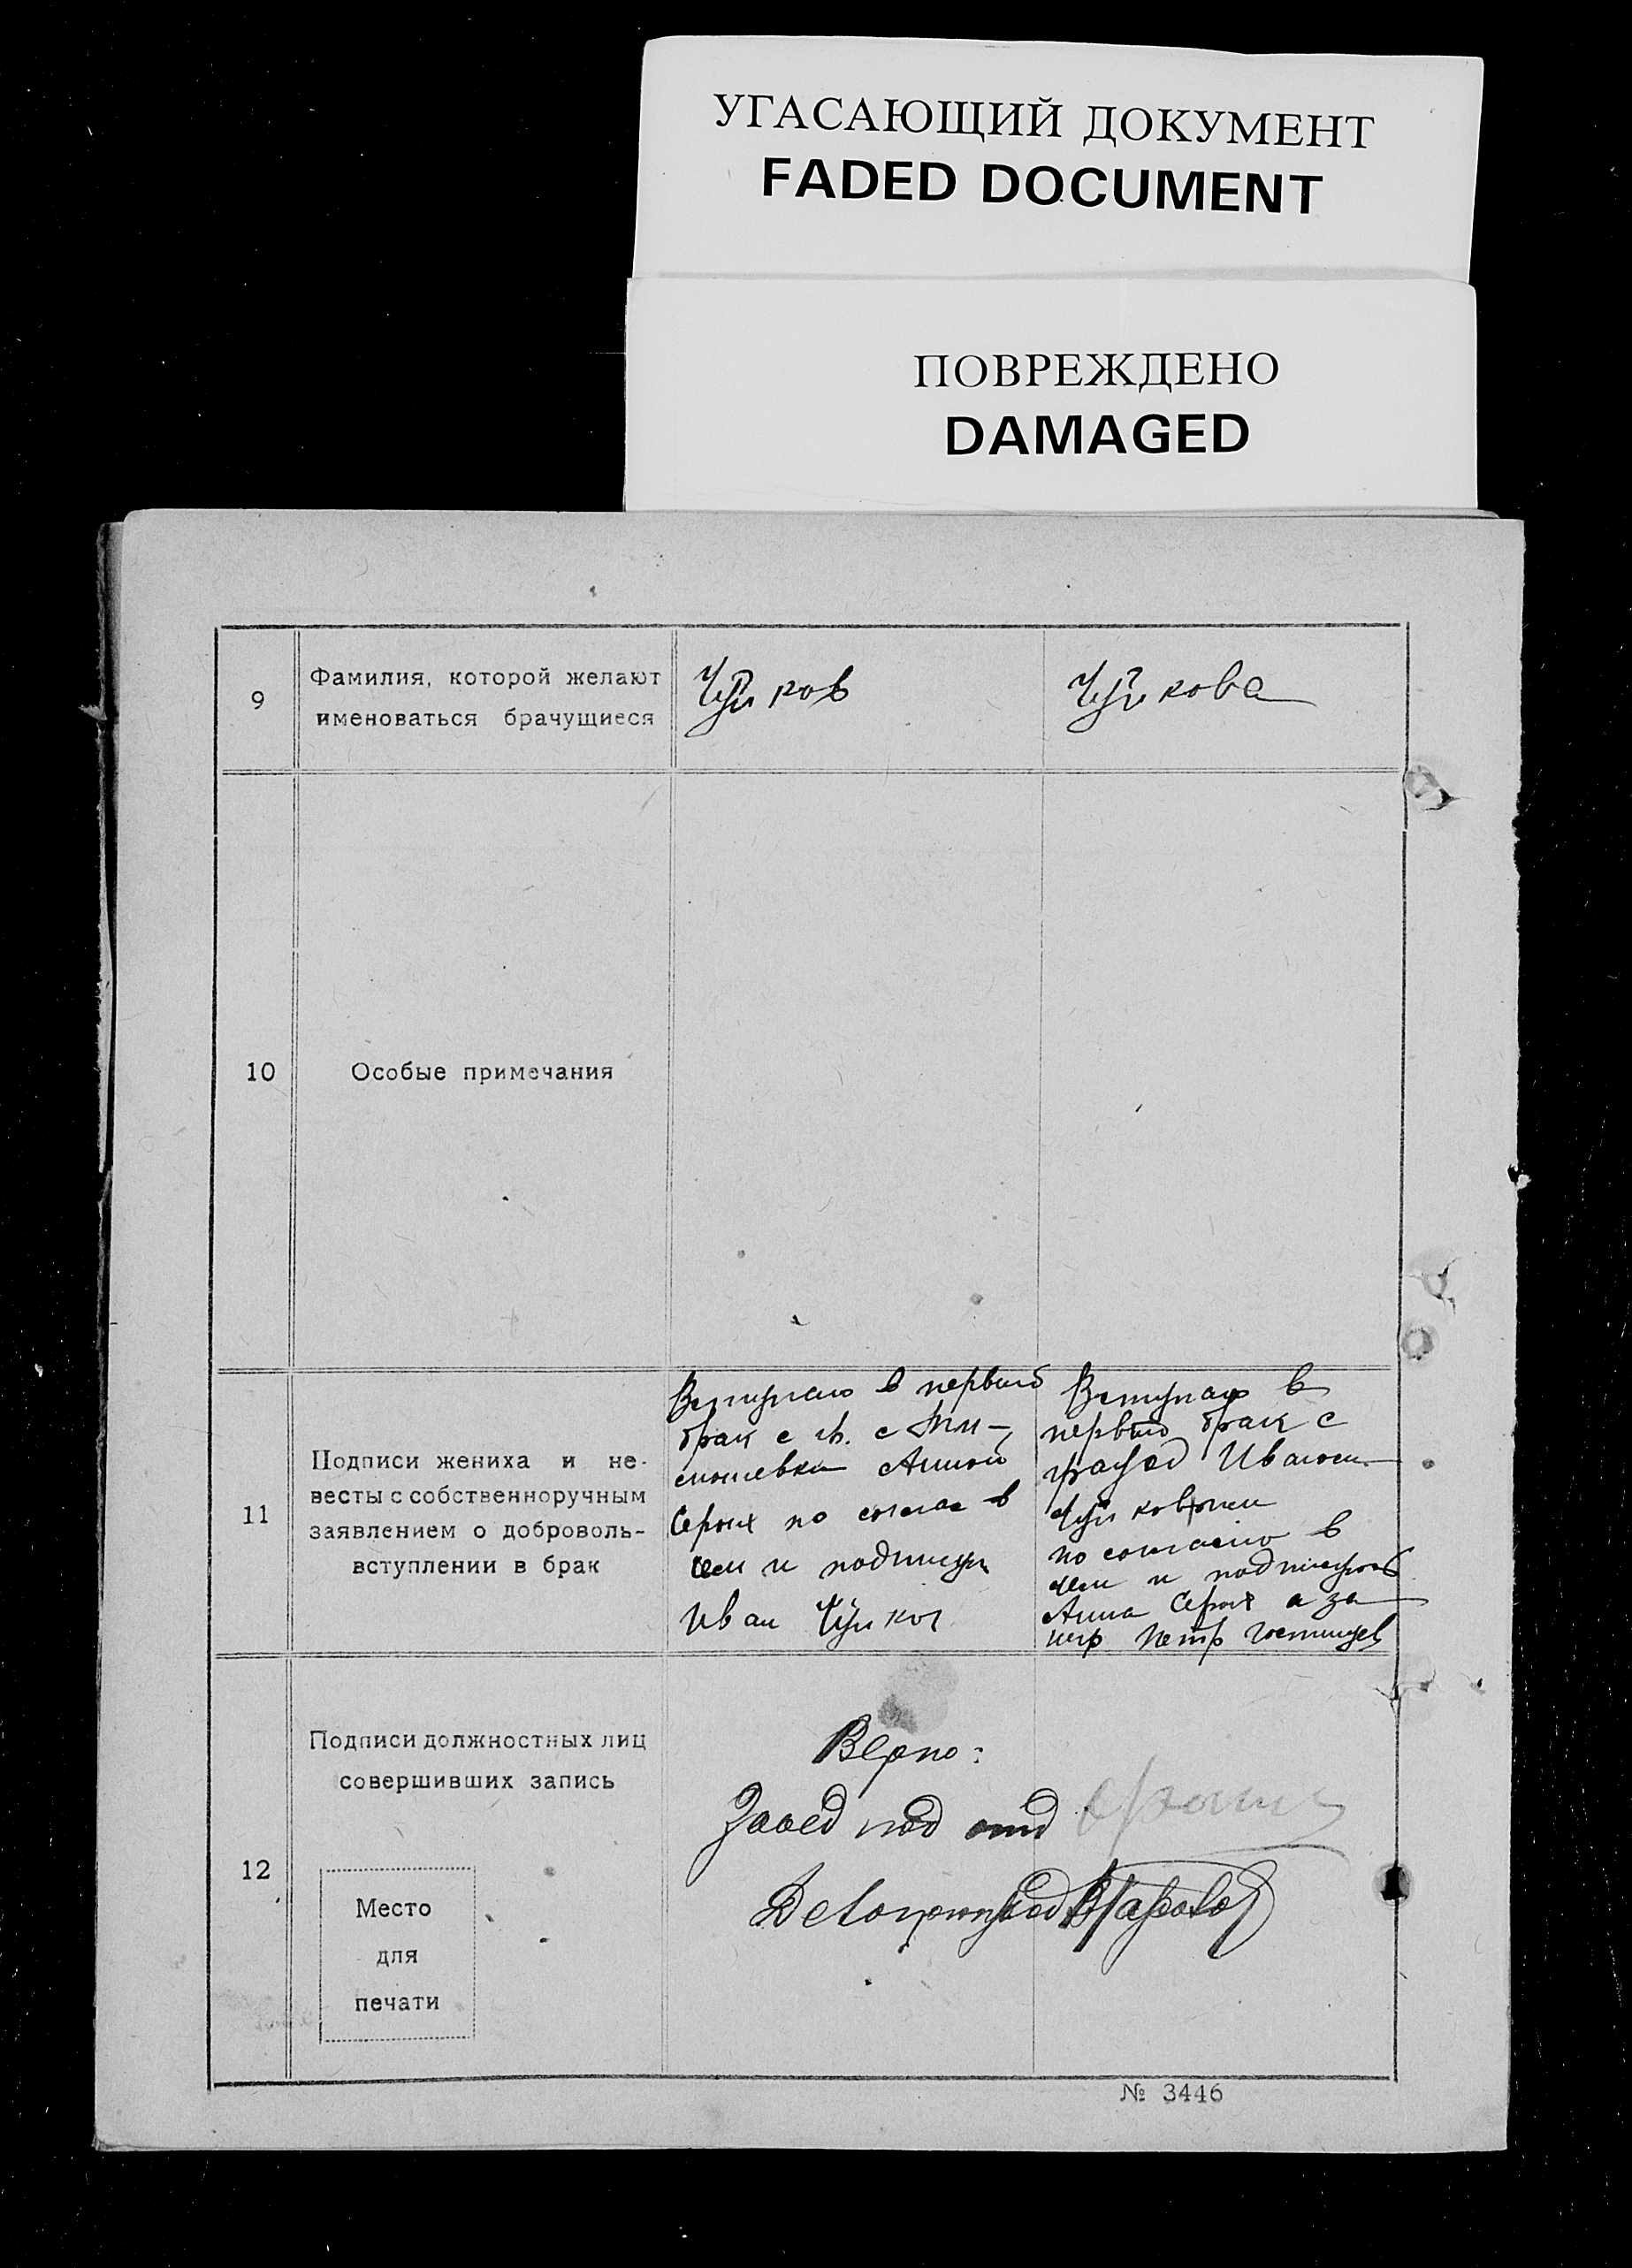 УГАСАЮЩИЙ ДОКУМЕНТ
FADED DOCUMENT
ПОВРЕЖДЕНО
DAMAGED
9
Фамилия, которой желают
именоваться брачущиеся
Чуйков
Чуйкова
10
Особые примечания
11
Подписи жениха и не-
весты с собственноручным
заявлением о доброволь-
вступлении в брак
Вступаю в первый
брак с
Анной
Серых по
чем и подпишусь
Иван Чуйков
Вступаю в
первый брак с
Иваном
по в
чем и
Анна Серых а за
Петр
12
Подписи должностных лиц
совершивших запись
Место
для
печати
Верно:
Завед под отд
Делопроизвод
№ 3446